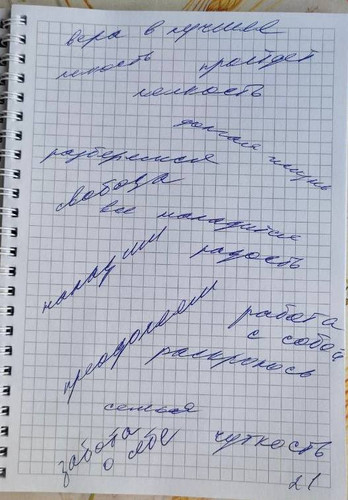 вера в лучшее
легкость пройдет
мелкость
долгая жизнь
разберемся
свобода
все наладится
наладим
радость
преодолеем
работа
с собой
раскроюсь
семья
забота
о себе
чуткость
21